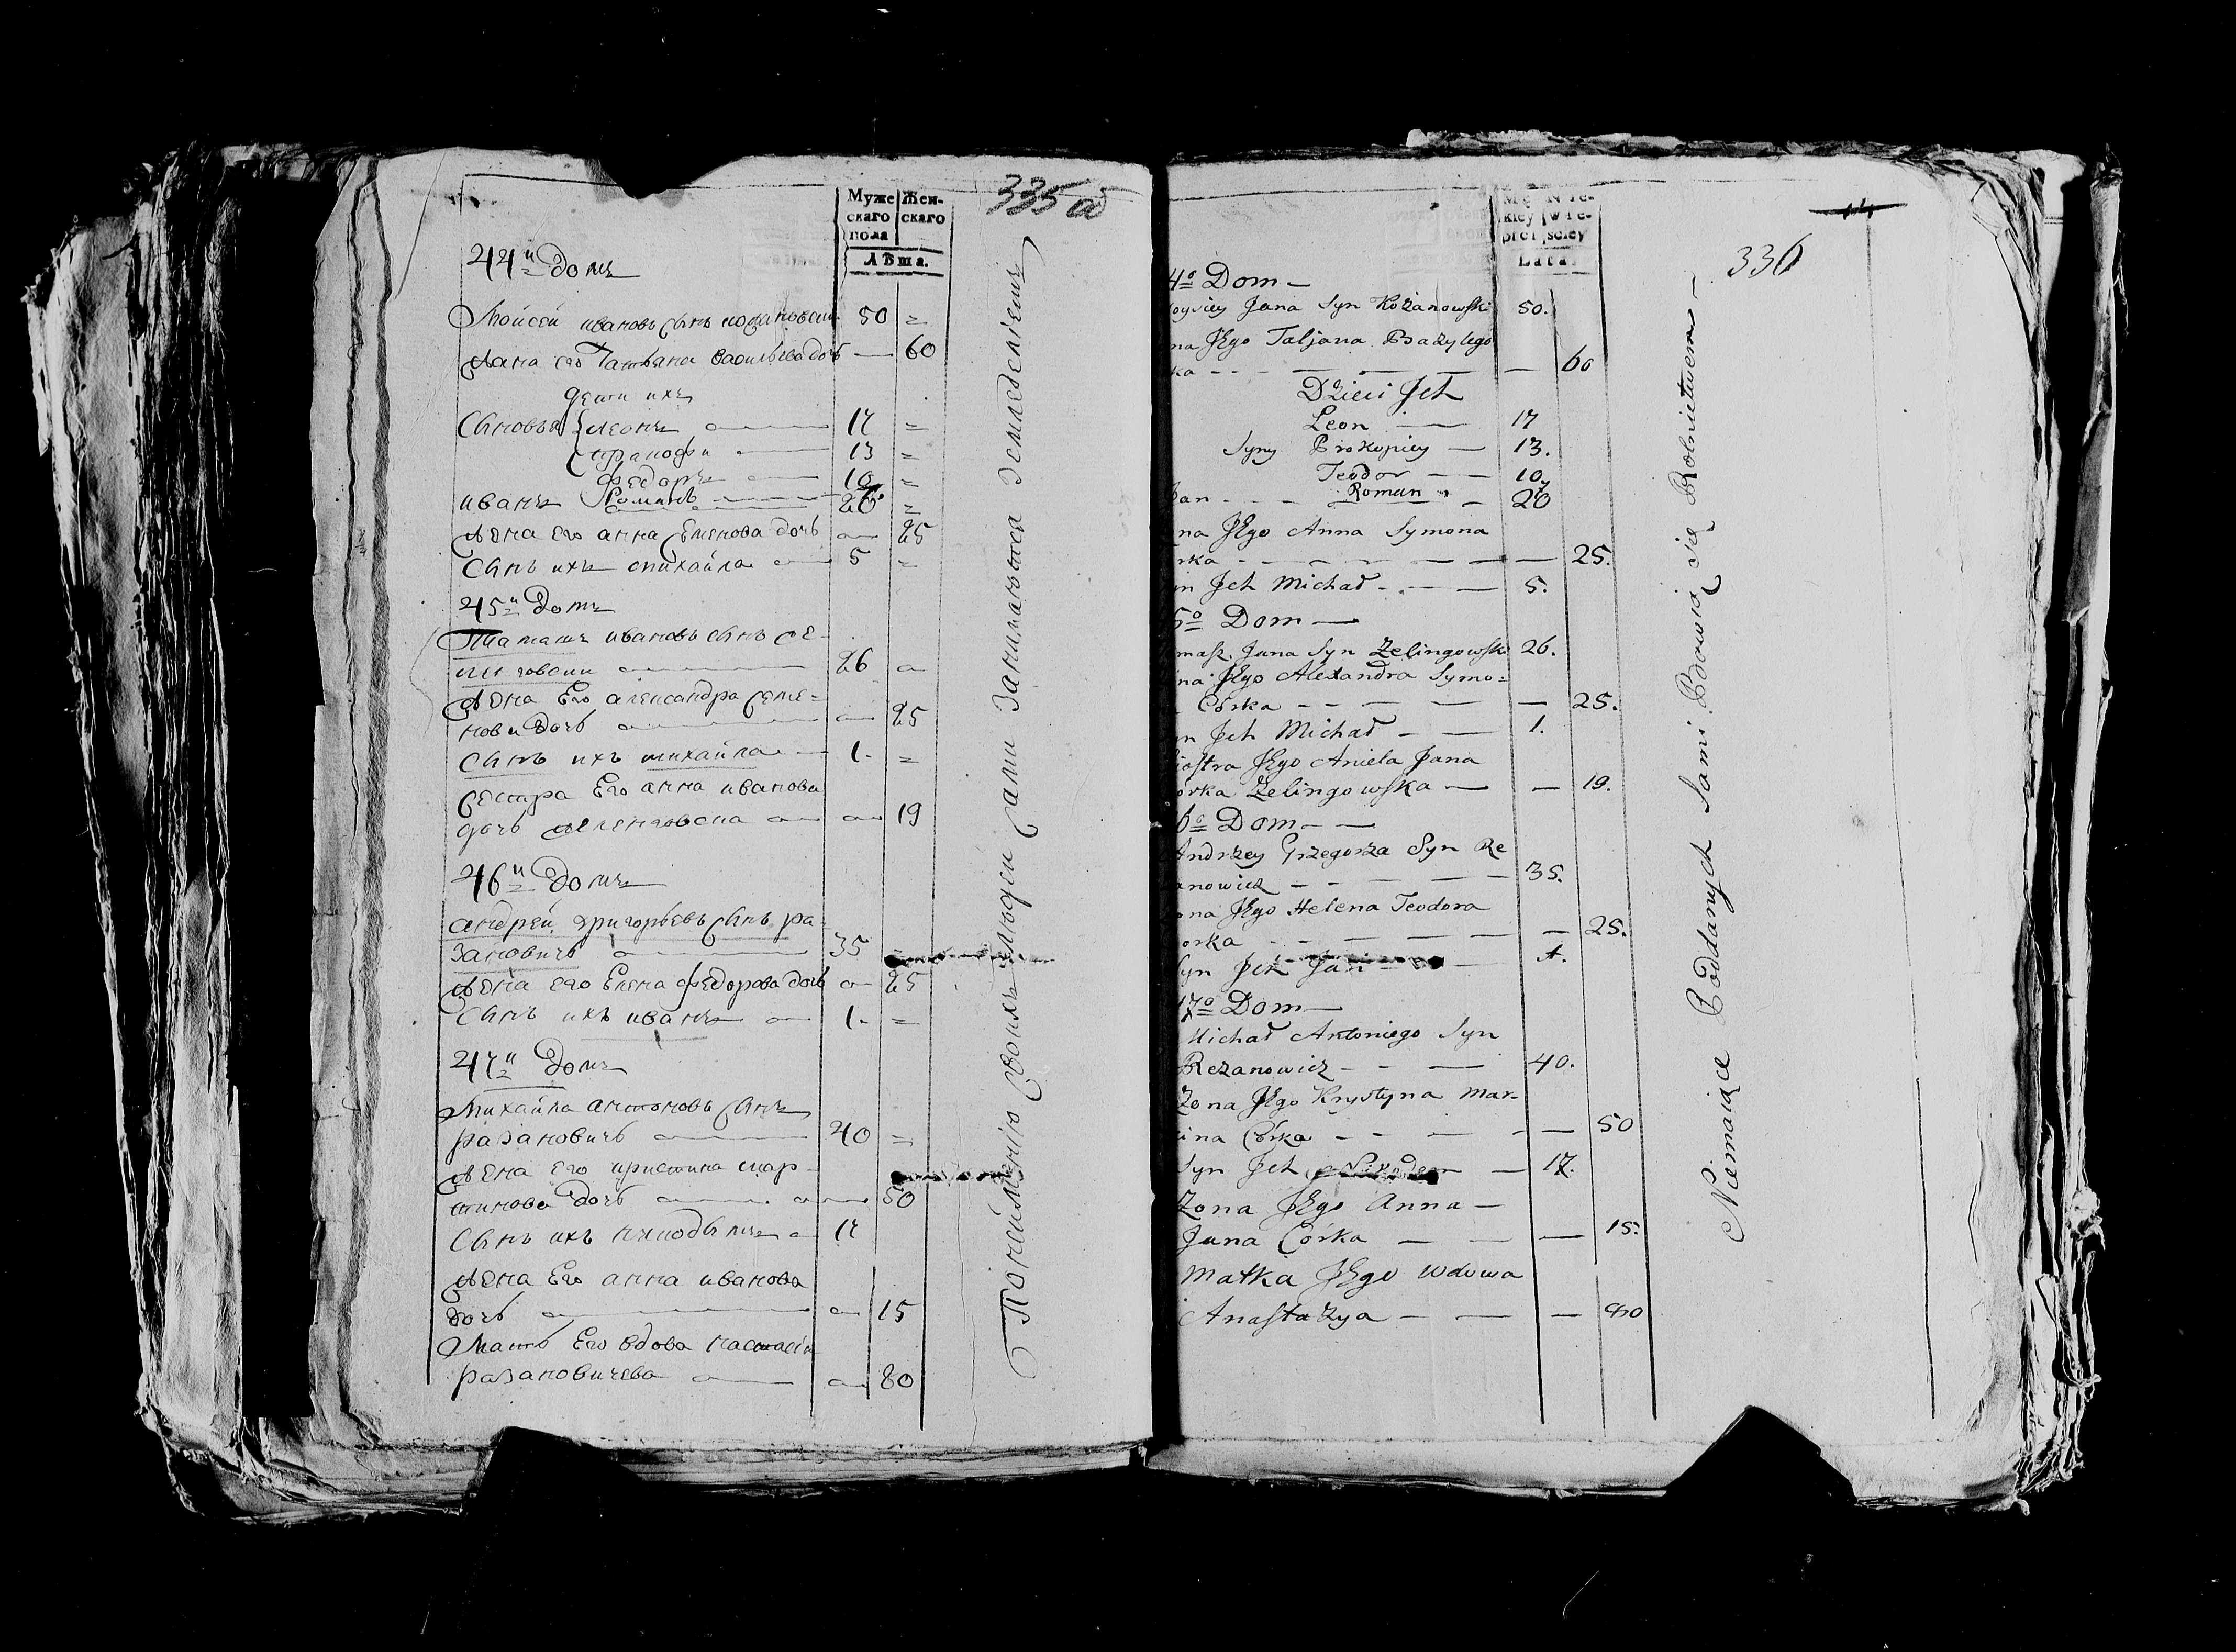 335 об
Муже
скаго
пола
Жен-
скаго
Лѣта.
44й Домъ
Мойсей ивановъ сынъ кожановски 50 =
Жана его Татьяна васильева дочь — 60
дети ихъ
Сыновья Леонъ — 17 =
13 =
Федоръ — 10 =
Романъ
иванъ — 20 =
Жена Его анна семенова дочь — 25
Сынъ ихъ михайла — 5 =
45й Домъ
Тамашъ ивановъ сынъ
26
Жена Его александра семе-
нова дочь — 25
Сынъ ихъ михайла — 1. =
Сестра Его анна иванова
дочь — 19
46й Домъ
андрей григорьевъ сынъ ра-
зановичъ — 35 =
Жена его Елена федорова дочь — 25
Сынъ ихъ иванъ — 1. =
47й Домъ
Михайла антоновъ сынъ
разановичъ — 40 =
Жена его кристина мар-
тинова дочь — 50
Сынъ ихъ — 17
Жена Его анна иванова
дочь — 15
Мать Его вдова настасія
разановичева — 80
своихъ людей сами занимаются земледелиемъ
336
Mę-
skiey
płci
Nie-
wie-
sciey
Lata.
4o Dom —
oysiey Jana Syn Kożanowski 50.
na Jego Tatjana Bazylego
ka — — 60
Dzieci Jch
Leon — 17
Syny Prokopiey — 13.
Teodor — 10
Roman
Jan — — 20
na Jego Anna Symona
rka — — 25.
n Jch Michał — — 5.
5o Dom —
masz Jana Syn Zelingowski 26.
na Jego Alexandra Symo=
Córka — — 25.
n Jch Michał — — 1.
iostra Jego Aniela Jana
orka Zelingowska — — 19.
6o Dom —
Andrzey Grzegorza Syn Re
anowicz — — 35.
ona Jego Helena Teodora
orka — — 25.
Syn Jch Jan — 1.
17o Dom —
Michał Antoniego Syn
Rezanowicz — — 40.
Zona Jego Krystyna Mar-
ina Córka — — 50
Syn Jch — 17.
Zona Jego Anna —
Jana Córka — — 15.
Matka Jego wdowa
Anastazya — — 80
Niemaiąc Poddanych Sami Bawią się Rolnictwem —